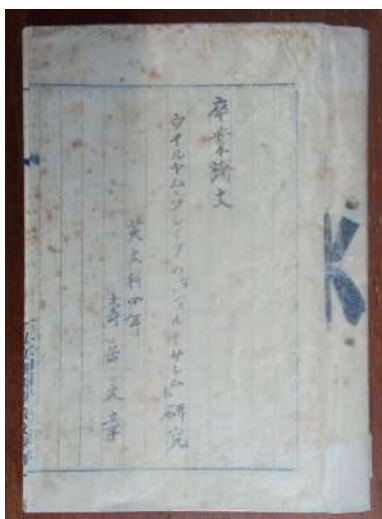 卒業論文
ウイルヤム・ブレークの「ジェルーサレム」研究
英文科四年
壽岳文章